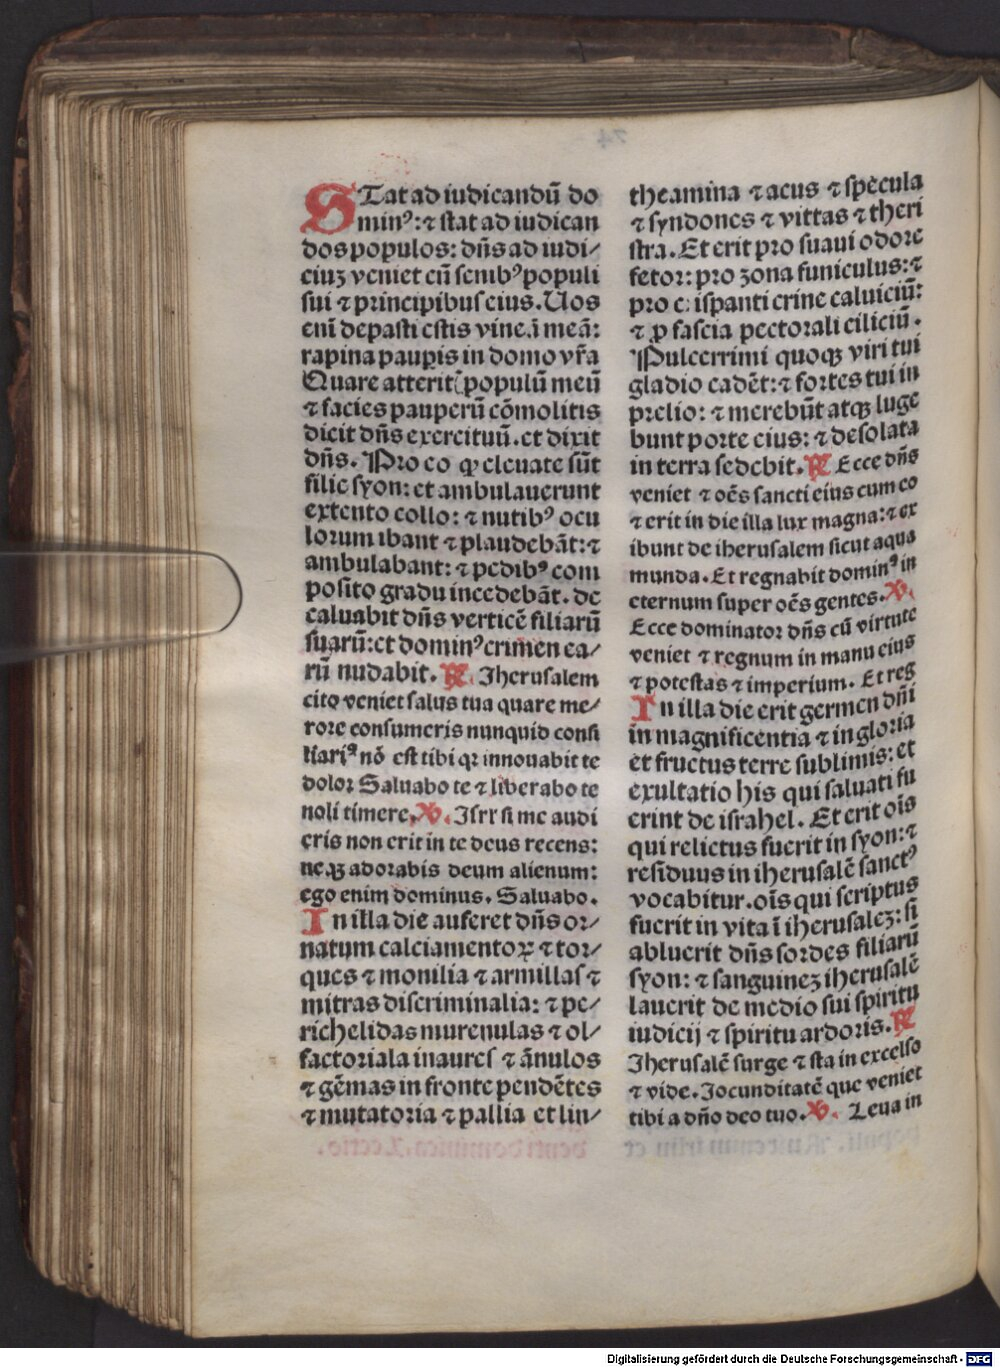 STat ad iudicandū do
minꝰ: ⁊ stat ad iudican
dos populos: dn̄s ad iudi/
ciuꝫ veniet cū senibꝰ populi
sui ⁊ principibus eius. Uos
enī depasti estis vineā meā:
rapina pauꝑis in domo vr̄a
Quare atterit(populū meū
⁊ facies pauperū cōmolitis
dicit dn̄s exercituū. et dixit
dn̄s. Pro eo ꝙ eleuate sūt
filie syon: et ambulauerunt
extento collo: ⁊ nutibꝰ ocu
lorum ibant ⁊ plaudebāt: ⁊
ambulabant: ⁊ pedibꝰ com
posito gradu incedebāt. de
caluabit dn̄s verticē filiarū
suarū: et dominꝰ crimen ea/
rū nudabit. ℟. Jherusalem
cito veniet salus tua quare me/
rore consumeris nunquid consi
liariꝰ nō est tibi qꝛ innouabit te
dolor Saluabo te ⁊ liberabo te
noli timere. ℣. Jsrl si me audi
eris non erit in te deus recens:
neqꝫ adorabis deum alienum:
ego enim dominus. Saluabo.
In illa die auferet dn̄s or/
natum calciamentoꝝ ⁊ tor/
ques ⁊ monilia ⁊ armillas ⁊
mitras discriminalia: ⁊ pe/
richelidas murenulas ⁊ ol/
factoriala inaures ⁊ ānulos
⁊ gēmas in fronte pendētes
⁊ mutatoria ⁊ pallia et lin/
theamina ⁊ acus ⁊ specula
⁊ syndones ⁊ vittas ⁊ theri
stra. Et erit pro suaui odore
fetor: pro zona funiculus: ⁊
pro crispanti crine caluiciū:
⁊ ꝓ fascia pectorali ciliciū.
Pulcerrimi quoqꝫ viri tui
gladio cadēt: ⁊ fortes tui in
prelio: ⁊ merebūt atqꝫ luge
bunt porte eius: ⁊ desolata
in terra sedebit. ℟ Ecce dn̄s
veniet ⁊ oēs sancti eius cum eo
⁊ erit in die illa lux magna: ⁊ ex
ibunt de iherusalem sicut aqua
munda. Et regnabit dominꝰ in
eternum super oēs gentes. ℣.
Ecce dominator dn̄s cū virtute
veniet ⁊ regnum in manu eius
⁊ potestas ⁊ imperium. Et reg
In illa die erit germen dn̄i
in magnificentia ⁊ in gloria
et fructus terre sublimis: et
exultatio his qui saluati fu
erint de israhel. Et erit oīs
qui relictus fuerit in syon: ⁊
residuus in iherusalē sanctꝰ
vocabitur. oīs qui scriptus
fuerit in vita ī iherusaleꝫ: si
abluerit dn̄s sordes filiarū
syon: ⁊ sanguineꝫ iherusalē
lauerit de medio sui spiritu
iudicij ⁊ spiritu ardoris. ℟
Jherusalē surge ⁊ sta in excelso
⁊ vide. Jocunditatē que veniet
tibi a dn̄o deo tuo. ℣. Leua in
Digitalisierung gefördert durch die Deutsche Forschungsgemeinschaft - DFG